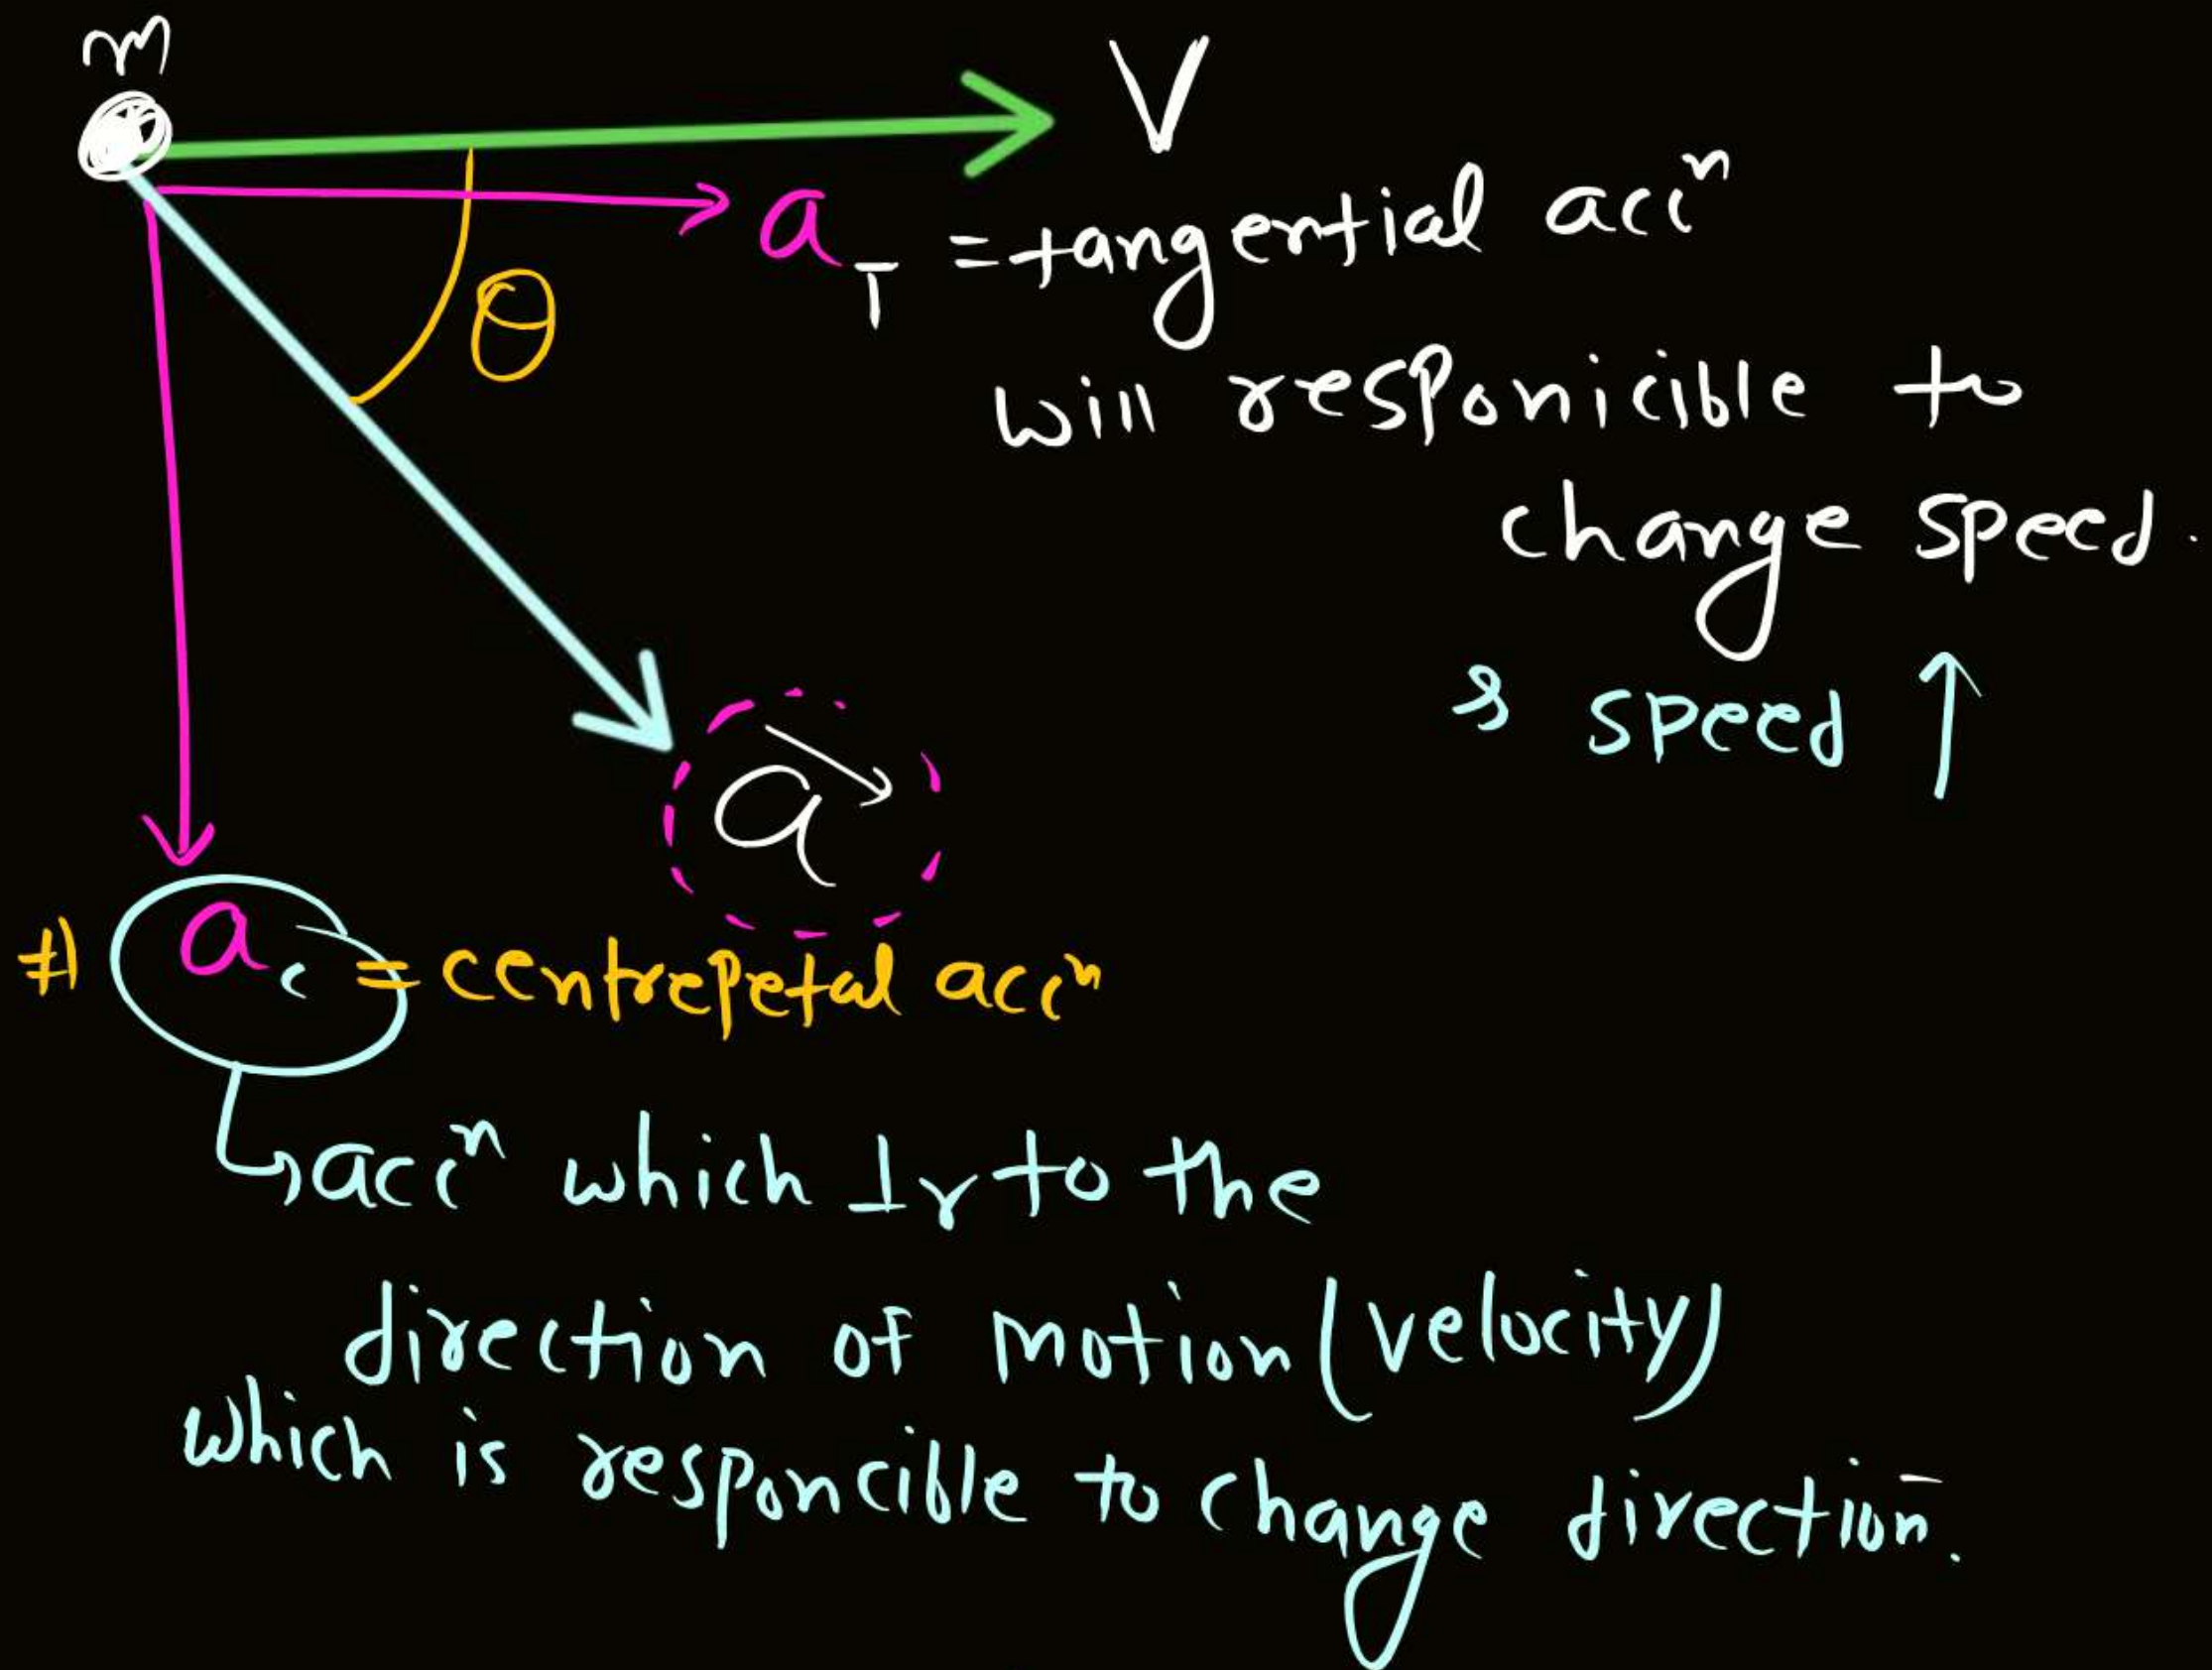 m
V
a_T = tangential accⁿ
will responicible to
change speed.
θ
& speed ↑
a⃗
#) a_c = centrepetal accⁿ
↳ accⁿ which ⊥r to the
direction of motion (velocity)
which is responcible to change direction.